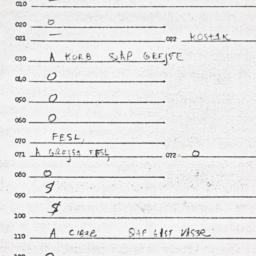 010
020 O
021 — 022 KOSTAK
030 A KORB SAP GREJSE
040 O
050 O
060 O
070 FESL
071 A GREJSE FESL 072 O
080 O
090 $
100 $
110 A SAP GAST